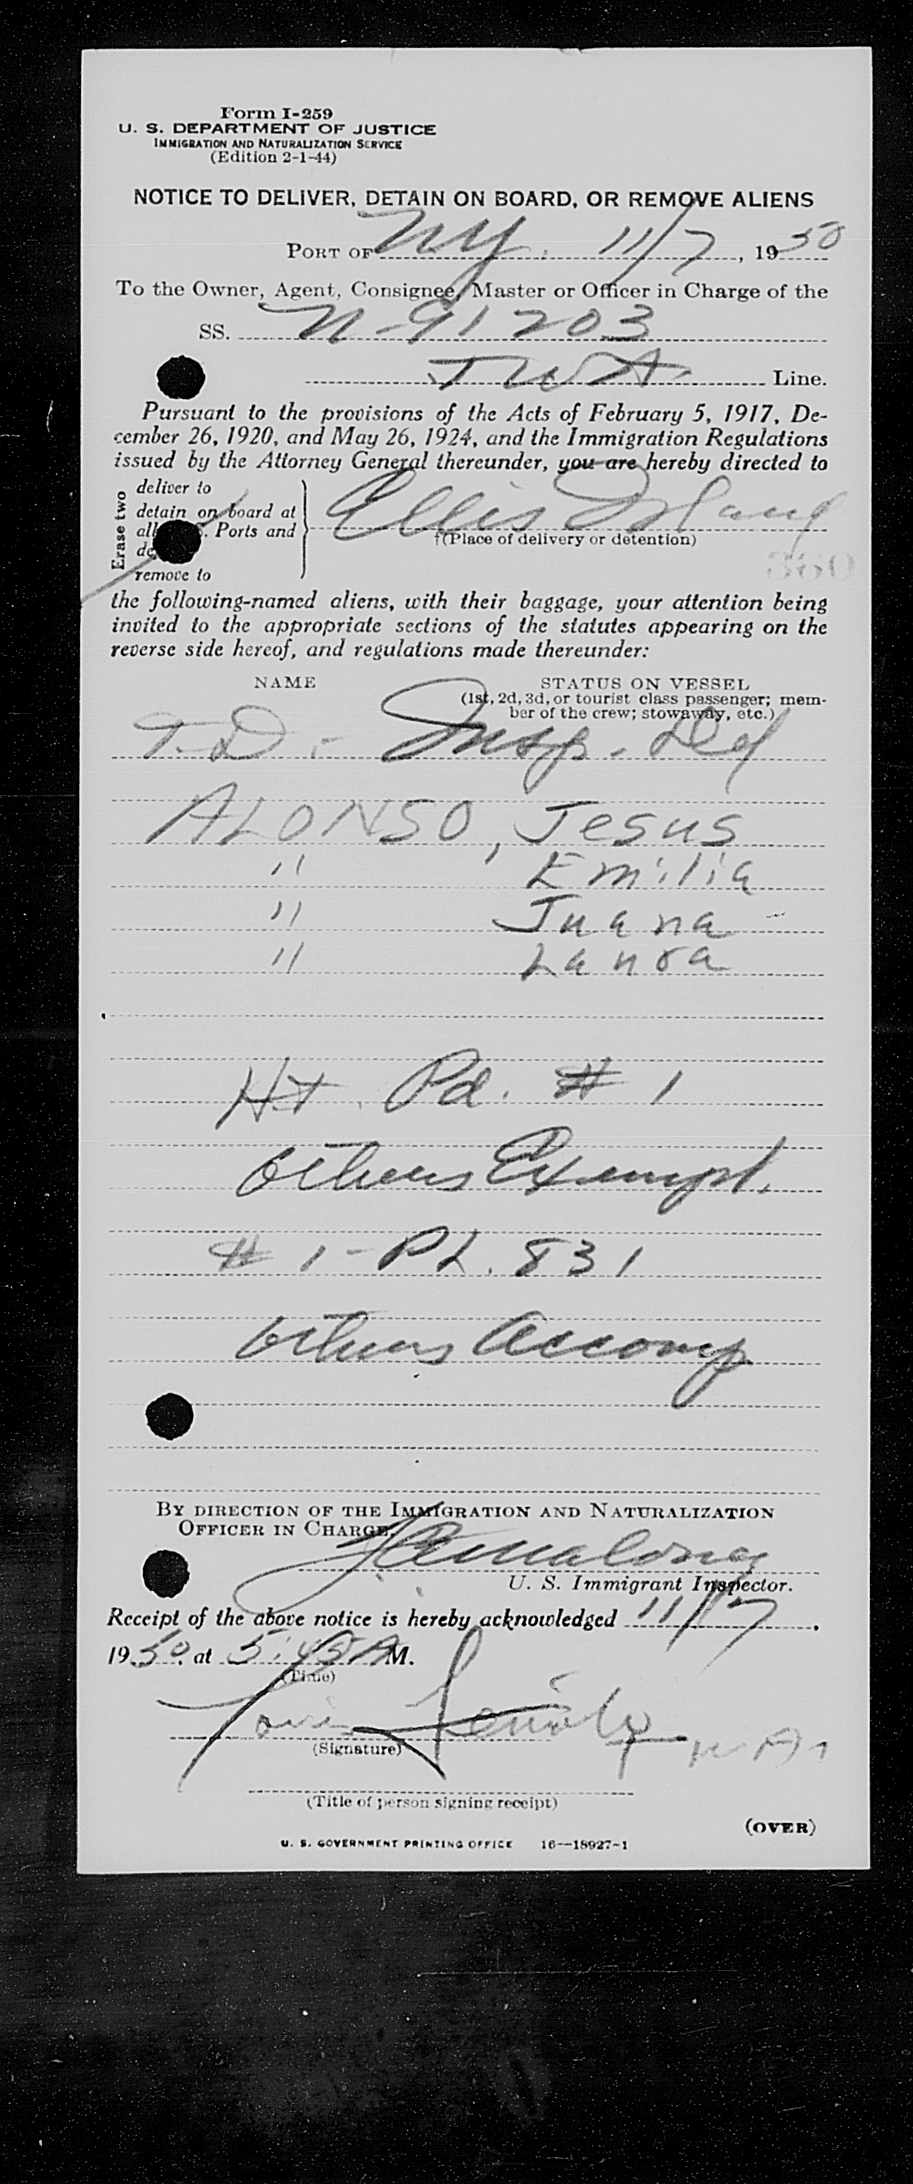 Form I-259
U. S. DEPARTMENT OF JUSTICE
IMMIGRATION AND NATURALIZATION SERVICE
(Edition 2-1-44)
NOTICE TO DELIVER, DETAIN ON BOARD, OR REMOVE ALIENS
PORT OF NY. 11/7, 1950
To the Owner, Agent, Consignee, Master or Officer in Charge of the
SS. N-91203
TWA Line.
Pursuant to the provisions of the Acts of February 5, 1917, De-
cember 26, 1920, and May 26, 1924, and the Immigration Regulations
issued by the Attorney General thereunder, you are hereby directed to
Erase two
deliver to
detain on board at
all Ports and
remove to
Ellis Island
†(Place of delivery or detention)
360
the following-named aliens, with their baggage, your attention being
invited to the appropriate sections of the statutes appearing on the
reverse side hereof, and regulations made thereunder:
NAME STATUS ON VESSEL
(1st, 2d, 3d, or tourist class passenger; mem-
ber of the crew; stowaway, etc.)
T.D. - Insp. Ded
ALONSO, Jesus
" Emilia
" Juana
" Laura
Ht. Pd. # 1
Others Exempt.
# 1 - PL. 831
Others Accomp
BY DIRECTION OF THE IMMIGRATION AND NATURALIZATION
OFFICER IN CHARGE.
U. S. Immigrant Inspector.
Receipt of the above notice is hereby acknowledged 11/7.
1950, at 5:45 A M.
(Time)
(Signature)
(Title of person signing receipt)
(OVER)
U. S. GOVERNMENT PRINTING OFFICE 16—18927-1